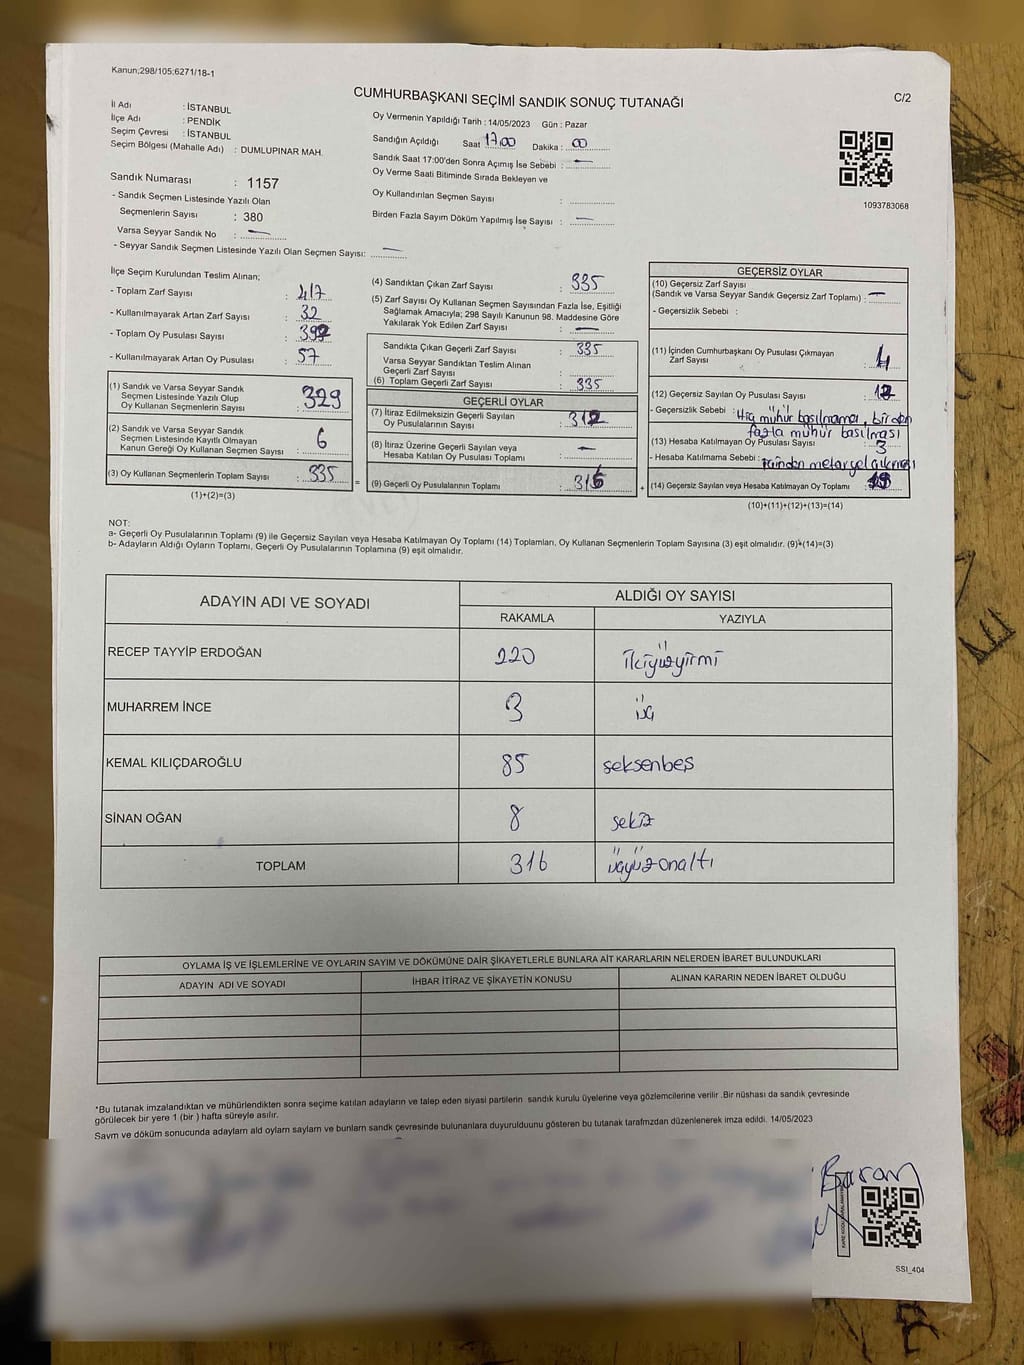 Kanun;298/105;6271/18-1
CUMHURBAŞKANI SEÇİMİ SANDIK SONUÇ TUTANAĞI
C/2
İl Adı : İSTANBUL
İlçe Adı : PENDİK
Seçim Çevresi : İSTANBUL
Seçim Bölgesi (Mahalle Adı) : DUMLUPINAR MAH.
Sandık Numarası : 1157
- Sandık Seçmen Listesinde Yazılı Olan
Seçmenlerin Sayısı : 380
Varsa Seyyar Sandık No : —
- Seyyar Sandık Seçmen Listesinde Yazılı Olan Seçmen Sayısı: —
Oy Vermenin Yapıldığı Tarih : 14/05/2023 Gün : Pazar
Sandığın Açıldığı Saat 17.00 Dakika : 00
Sandık Saat 17:00'den Sonra Açımış İse Sebebi : —
Oy Verme Saati Bitiminde Sırada Bekleyen ve
Oy Kullandırılan Seçmen Sayısı :
Birden Fazla Sayım Döküm Yapılmış İse Sayısı : —
1093783068
İlçe Seçim Kurulundan Teslim Alınan;
- Toplam Zarf Sayısı : 417
- Kullanılmayarak Artan Zarf Sayısı : 32
- Toplam Oy Pusulası Sayısı :
- Kullanılmayarak Artan Oy Pusulası : 57
(1) Sandık ve Varsa Seyyar Sandık
Seçmen Listesinde Yazılı Olup
Oy Kullanan Seçmenlerin Sayısı : 329
(2) Sandık ve Varsa Seyyar Sandık
Seçmen Listesinde Kayıtlı Olmayan
Kanun Gereği Oy Kullanan Seçmen Sayısı : 6
(3) Oy Kullanan Seçmenlerin Toplam Sayısı : 335
(1)+(2)=(3)
(4) Sandıktan Çıkan Zarf Sayısı : 335
(5) Zarf Sayısı Oy Kullanan Seçmen Sayısından Fazla İse, Eşitliği
Sağlamak Amacıyla; 298 Sayılı Kanunun 98. Maddesine Göre
Yakılarak Yok Edilen Zarf Sayısı : —
Sandıkta Çıkan Geçerli Zarf Sayısı : 335
Varsa Seyyar Sandıktan Teslim Alınan
Geçerli Zarf Sayısı :
(6) Toplam Geçerli Zarf Sayısı : 335
GEÇERLİ OYLAR
(7) İtiraz Edilmeksizin Geçerli Sayılan
Oy Pusulalarının Sayısı :
(8) İtiraz Üzerine Geçerli Sayılan veya
Hesaba Katılan Oy Pusulası Toplamı : —
(9) Geçerli Oy Pusulalarının Toplamı : 316
GEÇERSİZ OYLAR
(10) Geçersiz Zarf Sayısı
(Sandık ve Varsa Seyyar Sandık Geçersiz Zarf Toplamı) : —
- Geçersizlik Sebebi :
(11) İçinden Cumhurbaşkanı Oy Pusulası Çıkmayan
Zarf Sayısı : 4
(12) Geçersiz Sayılan Oy Pusulası Sayısı : 12
- Geçersizlik Sebebi : Hiç mühür basılmaması, birden
fazla mühür basılması
(13) Hesaba Katılmayan Oy Pusulası Sayısı : 3
- Hesaba Katılmama Sebebi : İçinden çıkması
(14) Geçersiz Sayılan veya Hesaba Katılmayan Oy Toplamı : 19
(10)+(11)+(12)+(13)=(14)
NOT:
a- Geçerli Oy Pusulalarının Toplamı (9) ile Geçersiz Sayılan veya Hesaba Katılmayan Oy Toplamı (14) Toplamları, Oy Kullanan Seçmenlerin Toplam Sayısına (3) eşit olmalıdır. (9)+(14)=(3)
b- Adayların Aldığı Oyların Toplamı, Geçerli Oy Pusulalarının Toplamına (9) eşit olmalıdır.
ADAYIN ADI VE SOYADI ALDIĞI OY SAYISI
RAKAMLA YAZIYLA
RECEP TAYYİP ERDOĞAN 220 ikiyüzyirmi
MUHARREM İNCE 3 üç
KEMAL KILIÇDAROĞLU 85 seksenbeş
SİNAN OĞAN 8 sekiz
TOPLAM 316 üçyüzonaltı
OYLAMA İŞ VE İŞLEMLERİNE VE OYLARIN SAYIM VE DÖKÜMÜNE DAİR ŞİKAYETLERLE BUNLARA AİT KARARLARIN NELERDEN İBARET BULUNDUKLARI
ADAYIN ADI VE SOYADI İHBAR İTİRAZ VE ŞİKAYETİN KONUSU ALINAN KARARIN NEDEN İBARET OLDUĞU
*Bu tutanak imzalandıktan ve mühürlendikten sonra seçime katılan adayların ve talep eden siyasi partilerin sandık kurulu üyelerine veya gözlemcilerine verilir .Bir nüshası da sandık çevresinde
görülecek bir yere 1 (bir ) hafta süreyle asılır.
Sayım ve döküm sonucunda adayların aldı oyların sayıları ve bunların sandk çevresinde bulunanlara duyurulduunu gösteren bu tutanak tarafmzdan düzenlenerek imza edildi. 14/05/2023
Baran
SSI_404